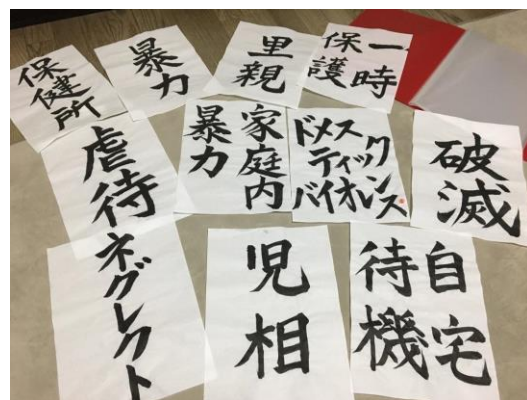 保健所
暴力
里親
一時
保護
虐待
家庭内
暴力
ドメス
ティック
バイオレンス
破滅
ネグレクト
児相
自宅
待機